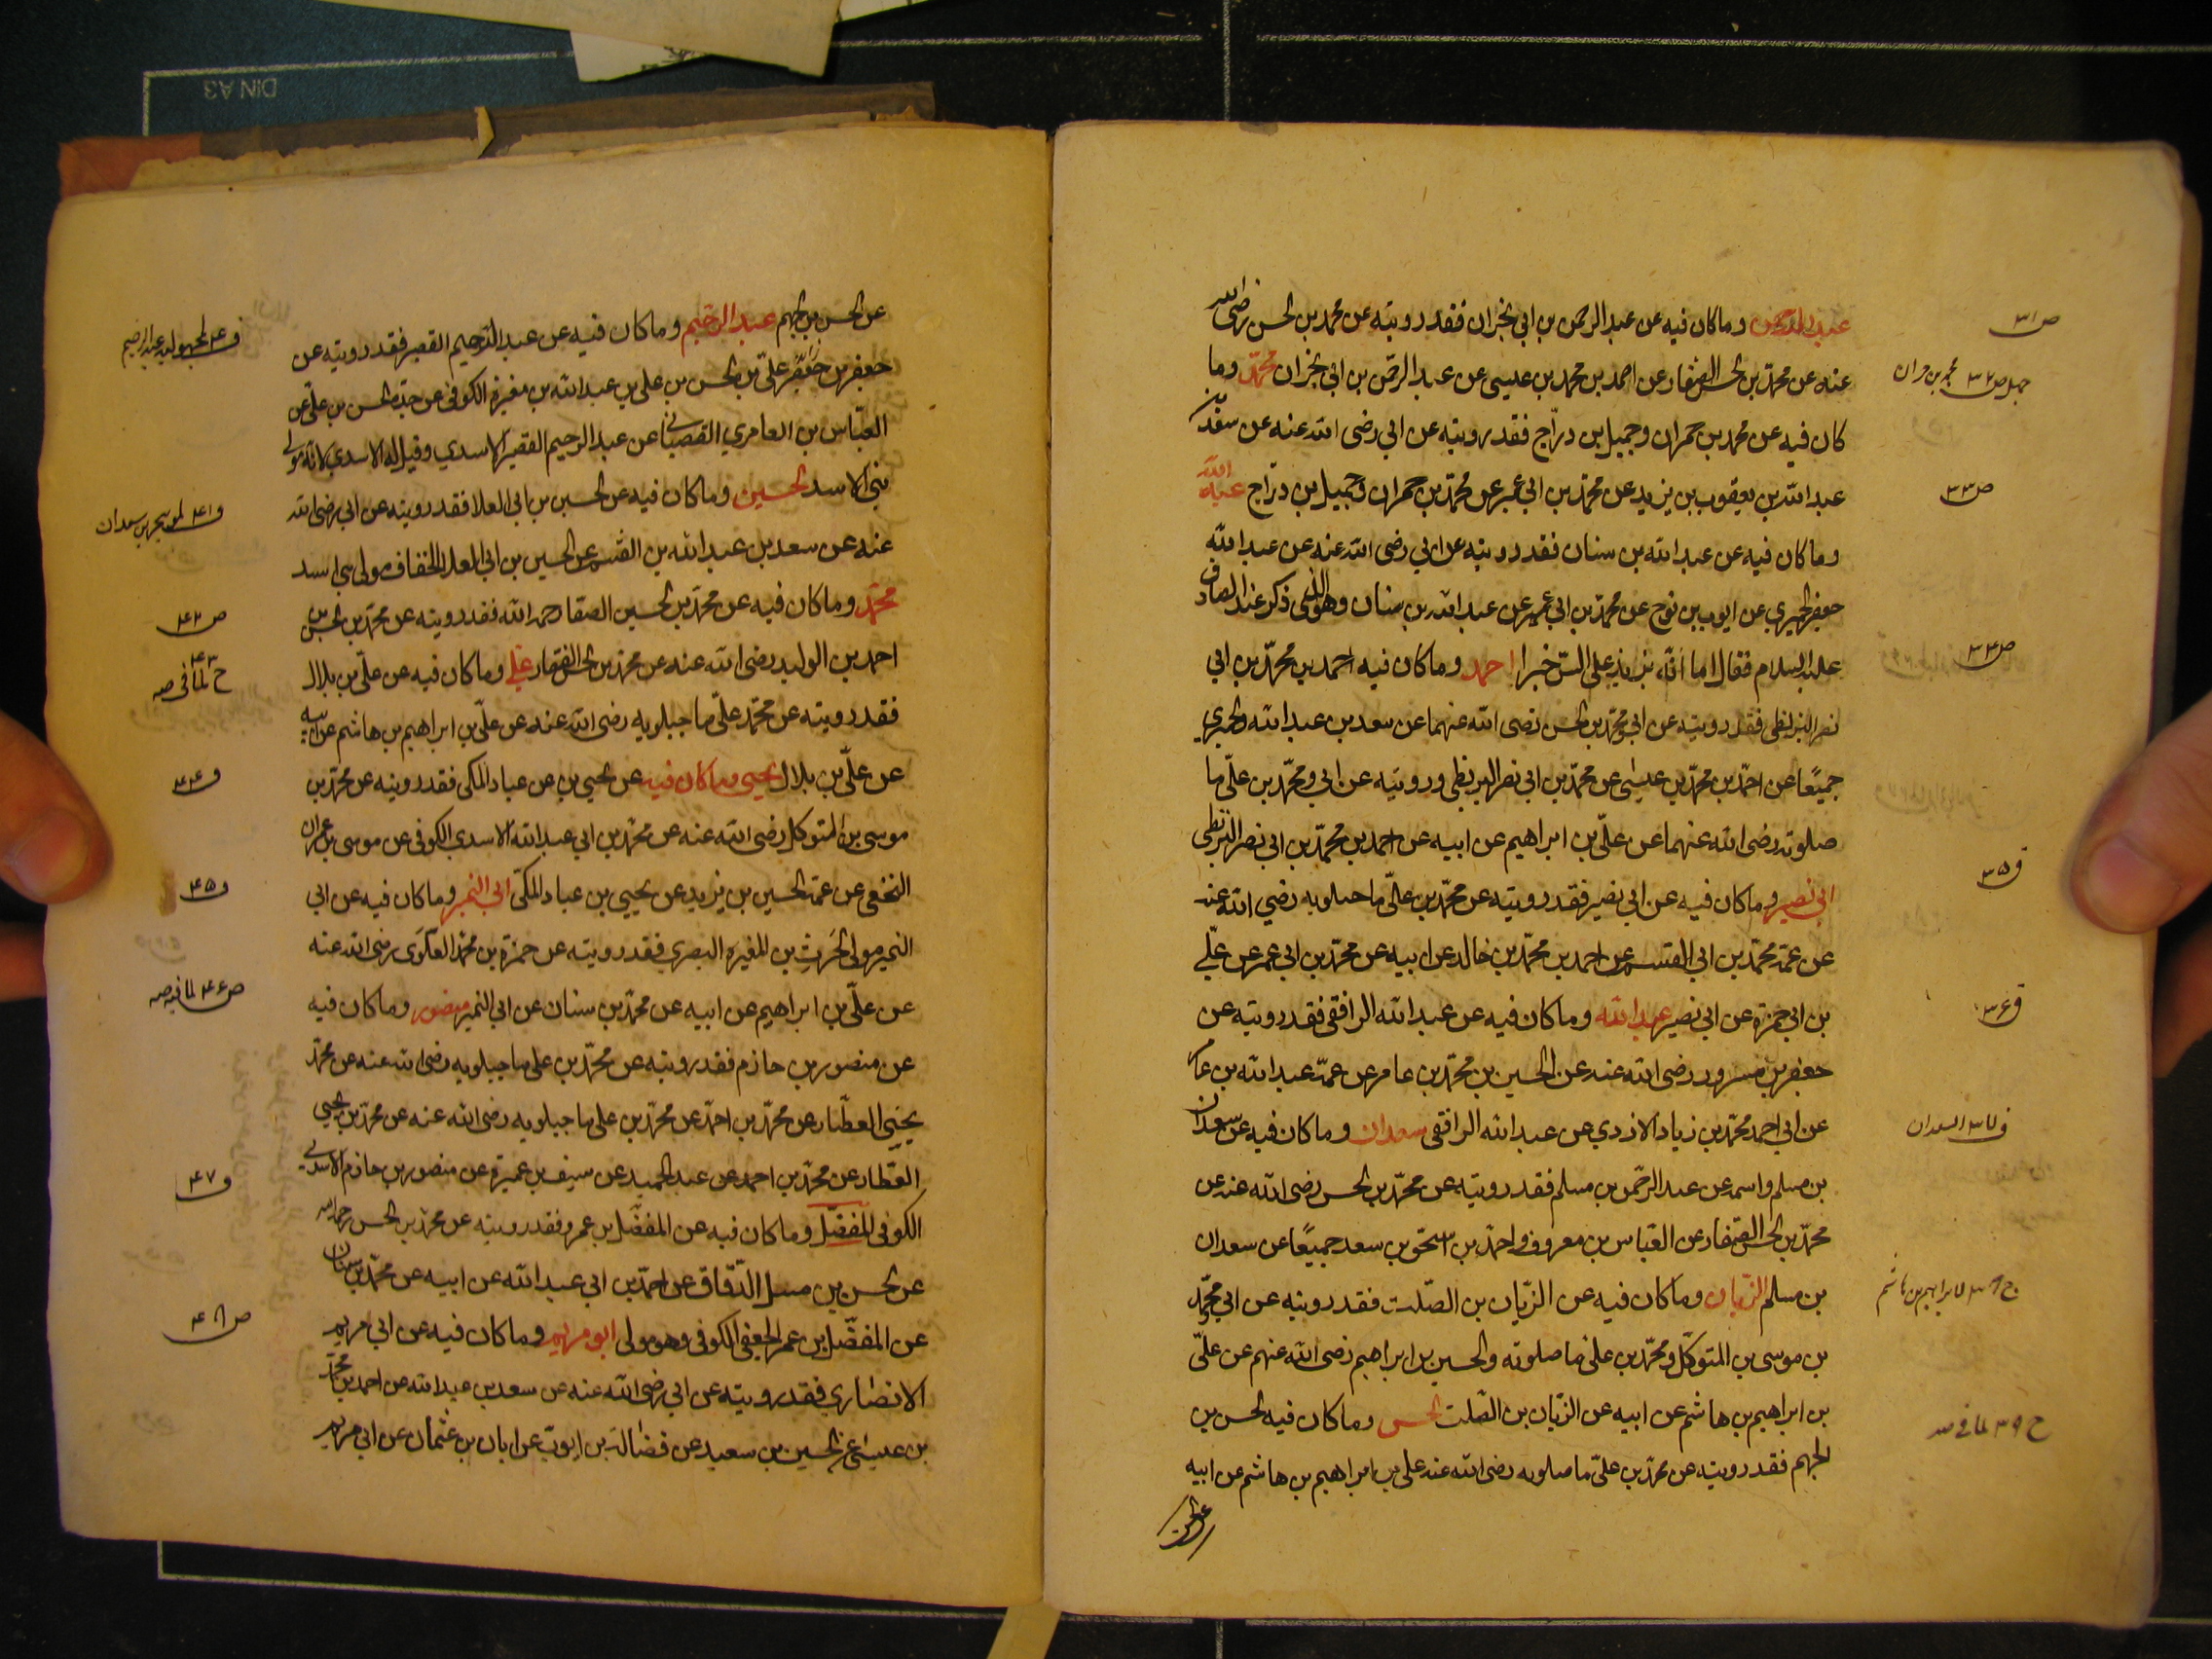 عبد الرحمن وما كان فيه عن عبد الرحمن بن ابي نجران فقد رويته عن محمد بن الحسن رضى الله
عنه عن محمد بن الحسن الصفار عن احمد بن محمد بن عيسى عن عبد الرحمن بن ابي نجران محمد وما
كان فيه عن محمد بن حمران وجميل بن دراج فقد رويته عن ابي رضى الله عنه عن سعد بن
عبد الله بن يعقوب بن يزيد عن محمد بن ابي عمير عن محمد بن حمران وجميل بن دراج عبد الله
وما كان فيه عن عبد الله بن سنان فقد رويته عن ابي رضى الله عنه عن عبد الله
جعفر الحميري عن ايوب بن نوح عن محمد بن ابي عمير عن عبد الله بن سنان وهو الذي ذكر عند الصادق
عليه السلام فقال اما انه يزيد على السن خيرا احمد وما كان فيه احمد بن محمد بن ابي
نصر البزنطي فقد رويته عن ابي ومحمد بن الحسن رضى الله عنهما عن سعد بن عبد الله والحميري
جميعا عن احمد بن محمد بن عيسى عن محمد بن ابي نصر البزنطي ورويته عن ابي ومحمد بن علي ما
رضى الله عنهما عن علي بن ابراهيم عن ابيه عن احمد بن محمد بن ابي نصر البزنطي
ابي بصير وما كان فيه عن ابي بصير فقد رويته عن محمد بن علي ماجيلويه رضي الله عنه
عن عمه محمد بن ابي القسم عن احمد بن محمد بن خالد عن ابيه عن محمد بن ابي عمير عن علي
بن ابي حمزة عن ابي بصير عبد الله وما كان فيه عن عبد الله الرافقي فقد رويته عن
جعفر بن مسرور رضى الله عنه عن الحسين بن محمد بن عامر عن عمه عبد الله بن عامر
عن ابي احمد محمد بن زياد الازدي عن عبد الله الرافقي سعدان وما كان فيه عن سعدان
بن مسلم واسمه عن عبد الرحمن بن مسلم فقد رويته عن محمد بن الحسن رضى الله عنه عن
محمد بن الحسن الصفار عن العباس بن معروف واحمد بن اسحق بن سعد جميعا عن سعدان
بن مسلم الريان وما كان فيه عن الريان بن الصلت فقد رويته عن ابي ومحمد
بن موسى بن المتوكل ومحمد بن علي ما والحسين بن ابراهيم رضى الله عنهم عن علي
بن ابراهيم بن هاشم عن ابيه عن الريان بن الصلت الحسن وما كان فيه الحسن بن
الجهم فقد رويته عن محمد بن علي ما رضى الله عنه علي بن ابراهيم بن هاشم عن ابيه
ص ٣١
٣٢ محمد بن حمران
ص ٣٣
ص ٣٤
ق ٣٥
ق ٣٦
ق ٣٧ السعدان
ح ٣٨ لابراهيم بن هاشم
ح ٣٩ لما في صه
عن الحسن بن الجهم عبد الرحيم وما كان فيه عن عبد الرحيم القصير فقد رويته عن
جعفر بن علي بن الحسن بن علي بن عبد الله بن مغيرة الكوفي عن جده الحسن بن علي عن
العباس بن العامري القصباني عن عبد الرحيم القصير الاسدي وقيل له الاسدي لانه مولى
بني الاسد الحسين وما كان فيه عن الحسين بن ابي العلا فقد رويته عن ابي رضى الله
عنه عن سعد بن عبد الله بن القسم عن الحسين بن ابي العلا الخفاف مولى بني اسد
محمد وما كان فيه عن محمد بن الحسين الصفار رحمه الله فقد رويته عن محمد بن الحسن بن
احمد بن الوليد رضى الله عنه عن محمد بن الحسن الصفار علي وما كان فيه عن علي بن بلال
فقد رويته عن محمد علي ماجيلويه رضى الله عنه عن علي بن ابراهيم بن هاشم عن ابيه
عن علي بن بلال يحيى وما كان فيه عن يحيى بن عن عباد المكي فقد رويته عن محمد بن
موسى بن المتوكل رضى الله عنه عن محمد بن ابي عبد الله الاسدي الكوفي عن موسى بن عمران
النخعي عن عمه الحسين بن يزيد عن يحيى بن عباد المكي ابي النمير وما كان فيه عن ابي
النمير مولى الحرث بن المغيرة البصري فقد رويته عن حمزة بن محمد العلوي رضى الله عنه
عن علي بن ابراهيم عن ابيه عن محمد بن سنان عن ابي النمير منصور وما كان فيه
عن منصور بن حازم فقد رويته عن محمد بن علي ماجيلويه رضى الله عنه عن محمد
يحيى العطار عن محمد بن احمد عن محمد بن علي ماجيلويه رضى الله عنه عن محمد بن يحيى
العطار عن محمد بن احمد عن عبد الحميد عن سيف بن عميرة عن منصور بن حازم الاسدي
الكوفي المفضل وما كان فيه عن المفضل بن عمر فقد رويته عن محمد بن الحسن رحمه الله
عن الحسن بن الدقاق عن احمد بن ابي عبد الله عن ابيه عن محمد بن سنان
عن المفضل بن عمر الجعفي الكوفي وهو مولى ابو مريم وما كان فيه عن ابي مريم
الانصاري فقد رويته عن ابي رضى الله عنه عن سعد بن عبد الله عن احمد بن محمد
بن عيسى عن الحسين بن سعيد عن فضالة بن ايوب عن ابان بن عثمان عن ابي مريم
ق ٤٠ لعبد الرحيم
ق ٤١
ص ٤٢
ح ٤٣ لما في صه
ق ٤٤
ق ٤٥
ص ٤٦ لما في صه
ق ٤٧
ص ٤٨